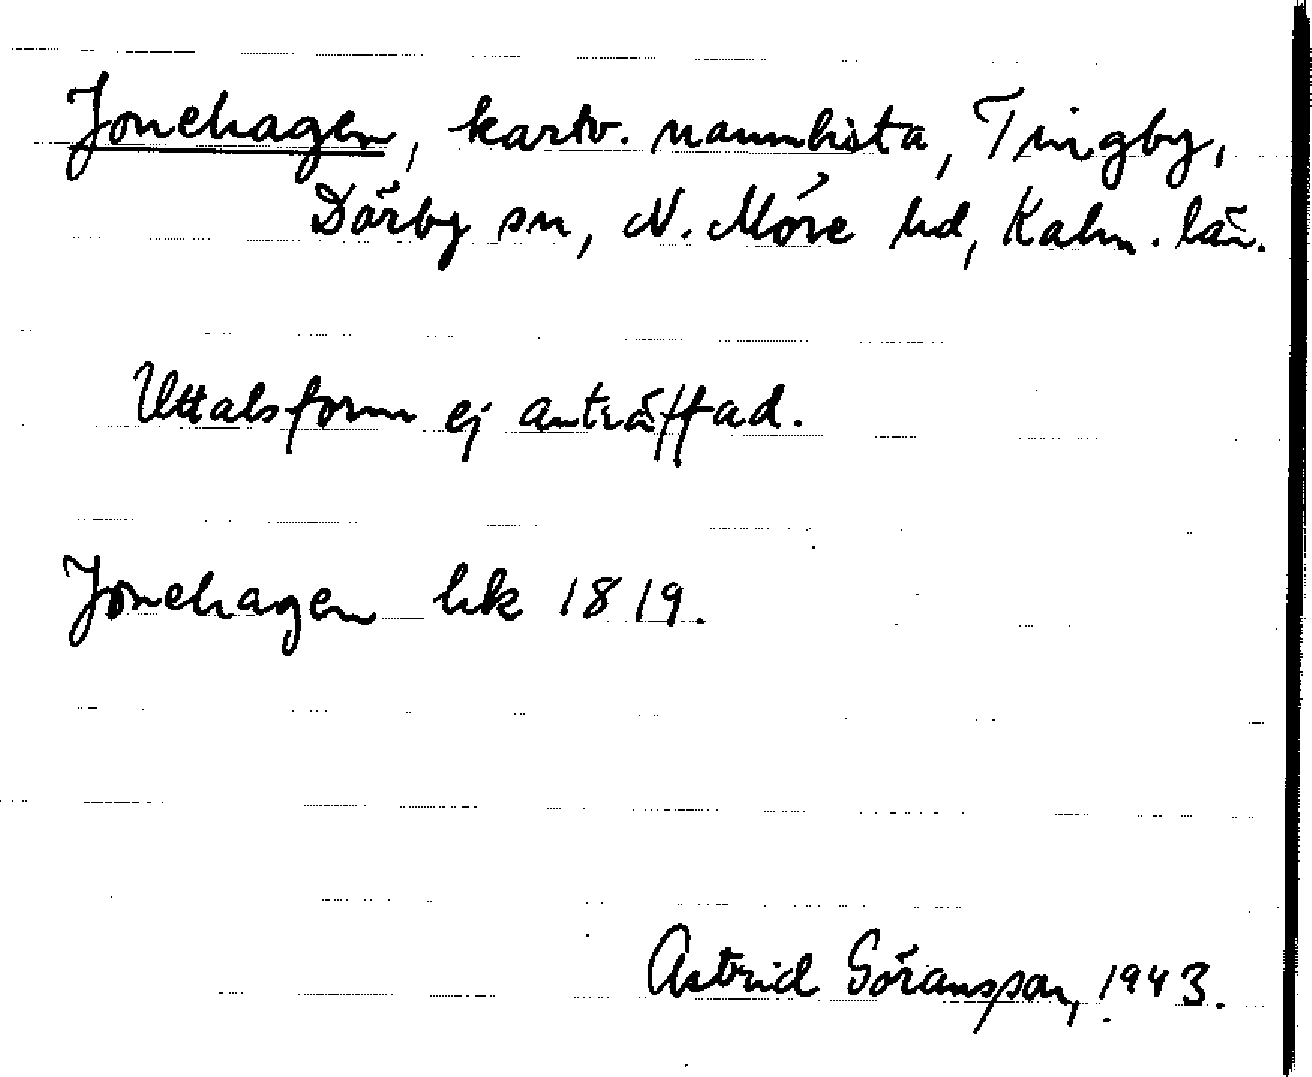 Jonehagen, kartv. namnlista, Tingby,
Dörby sn, N. Möre hd, Kalm. län.
Uttalsform ej anträffad.
Jonehagen lsk 1819.
Astrid Göransson, 1943.